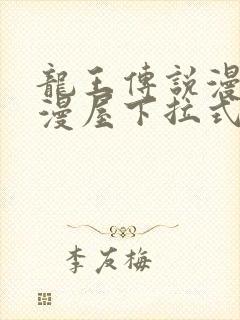 龍王傳說漫
漫屋下拉式
李友梅